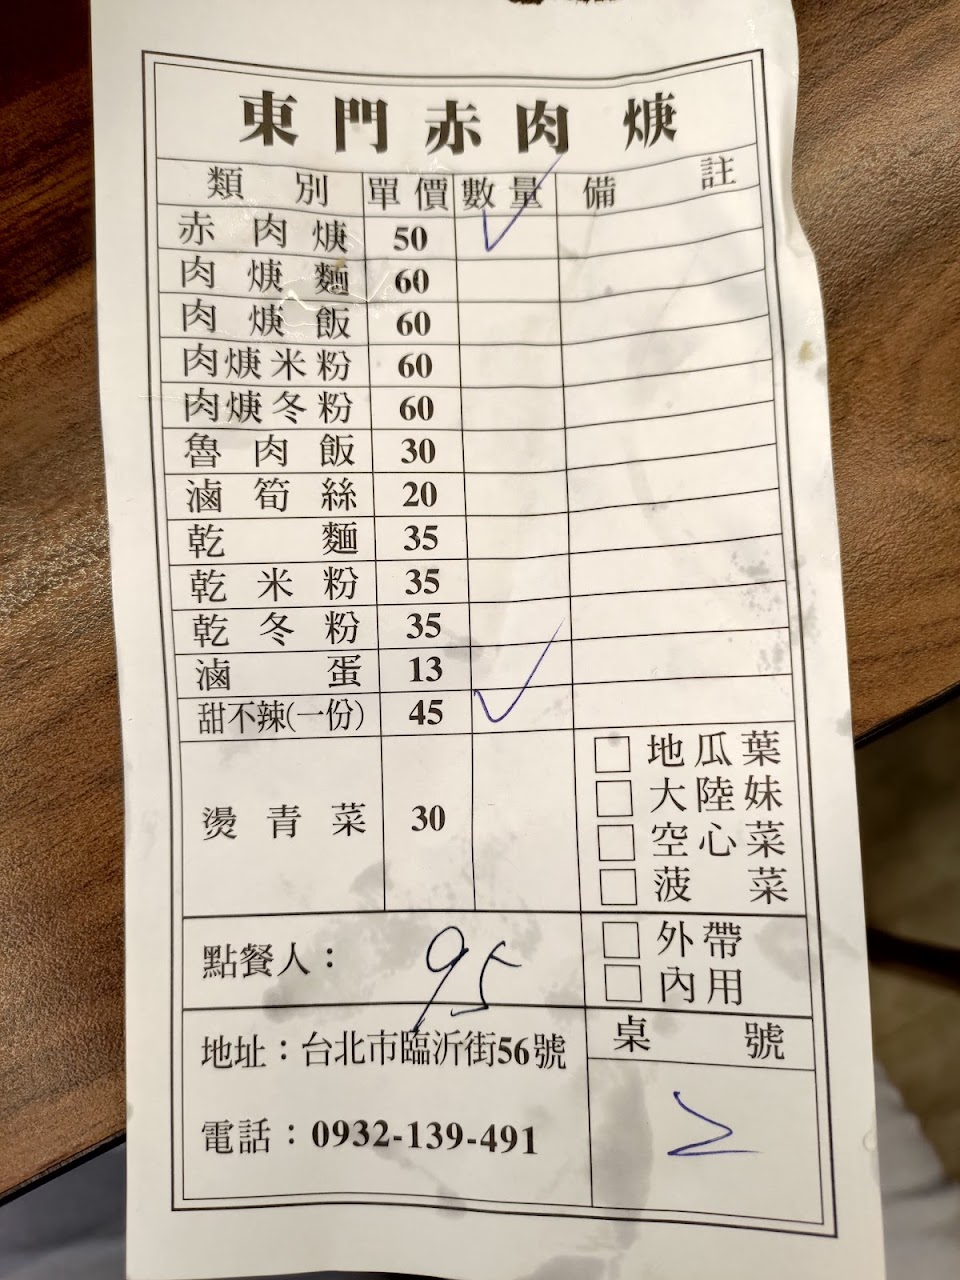 東門赤肉焿
類別 單價 數量 備註
赤肉焿 50 ✓
肉焿麵 60
肉焿飯 60
肉焿米粉 60
肉焿冬粉 60
魯肉飯 30
滷筍絲 20
乾麵 35
乾米粉 35
乾冬粉 35
滷蛋 13
甜不辣(一份) 45 ✓
燙青菜 30
□ 地瓜葉
□ 大陸妹
□ 空心菜
□ 菠菜
點餐人： 95
□ 外帶
□ 內用
地址：台北市臨沂街56號
電話：0932-139-491
桌號
2